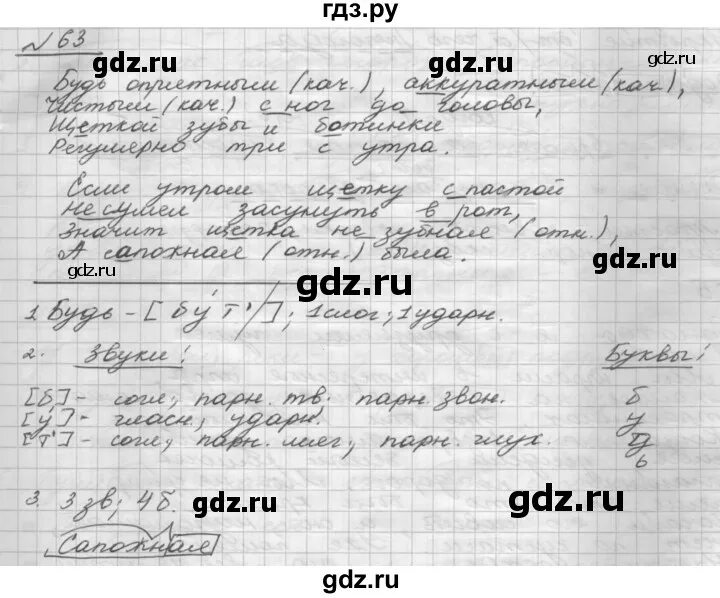 гдз.ру
№ 63
gdz.ru gdz.ru gdz.ru
Будь опрятным (кач.), аккуратным (кач.),
Чистым (кач.) с ног до головы,
Щеткой зубы и ботинки
Регулярно три с утра.
gdz.ru gdz.ru
Если утром щетку с пастой
Не сумел засунуть в рот,
Значит щетка не зубная (отн.),
А сапожная (отн.) была.
gdz.ru gdz.ru gdz.ru
1. Будь - [бу́т'] ; 1 слог, 1 ударн.
2. Звуки: Буквы:
gdz.ru gdz.ru
[б] - согл., парн. тв. парн. звон. б
[у́] - гласн., ударн. у
[т'] - согл., парн. мяг., парн. глух. д
ь
gdz.ru gdz.ru gdz.ru
3. 3 зв; 4 б.
Сапожная
gdz.ru gdz.ru